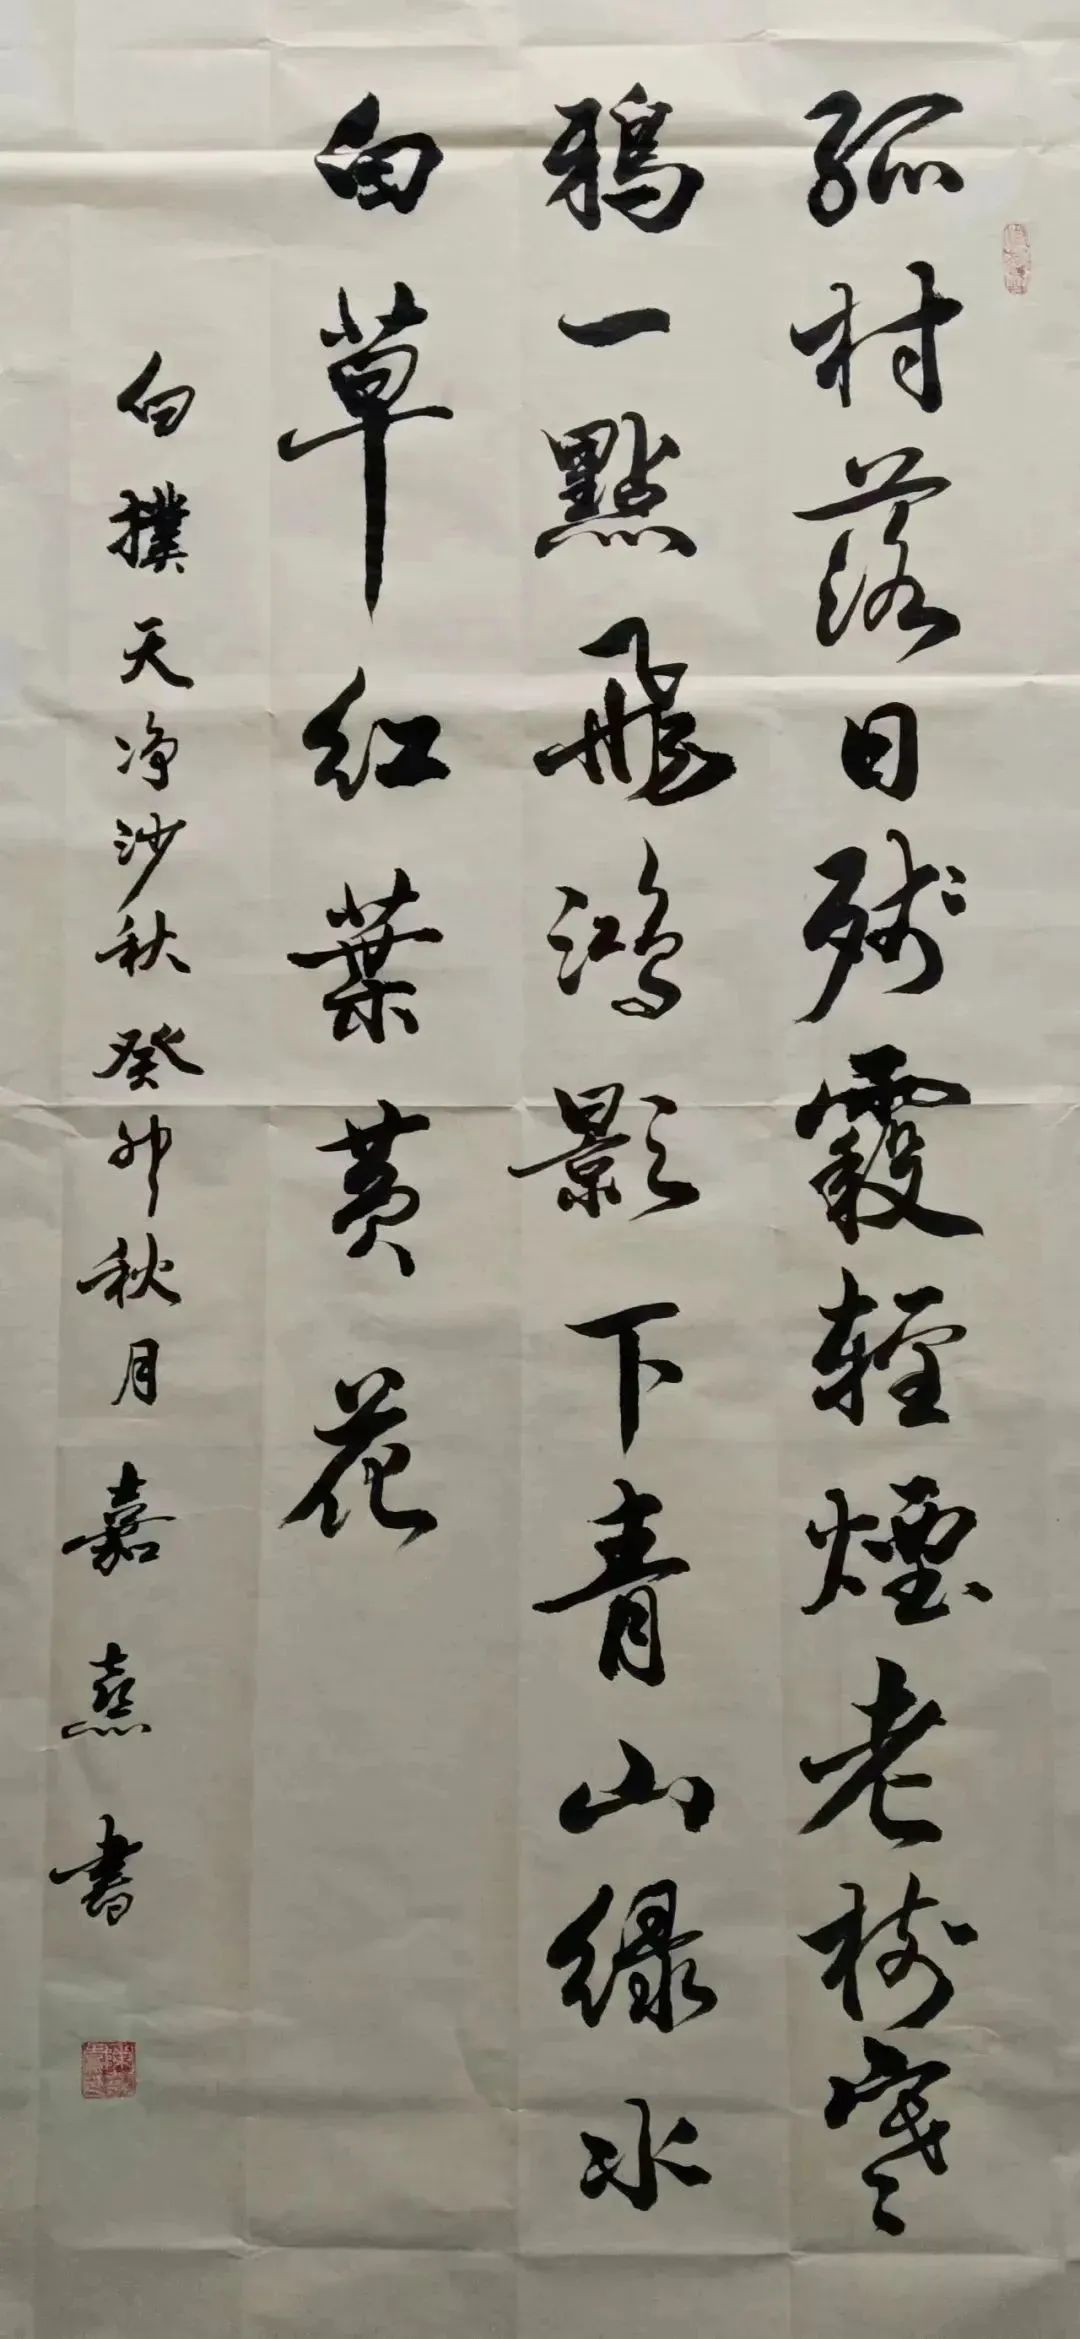 孤村落日残霞輕煙老树寒
鴉一點飛鴻影下青山緑水
白草紅葉黄花
白樸天净沙秋癸卯秋月嘉熹書